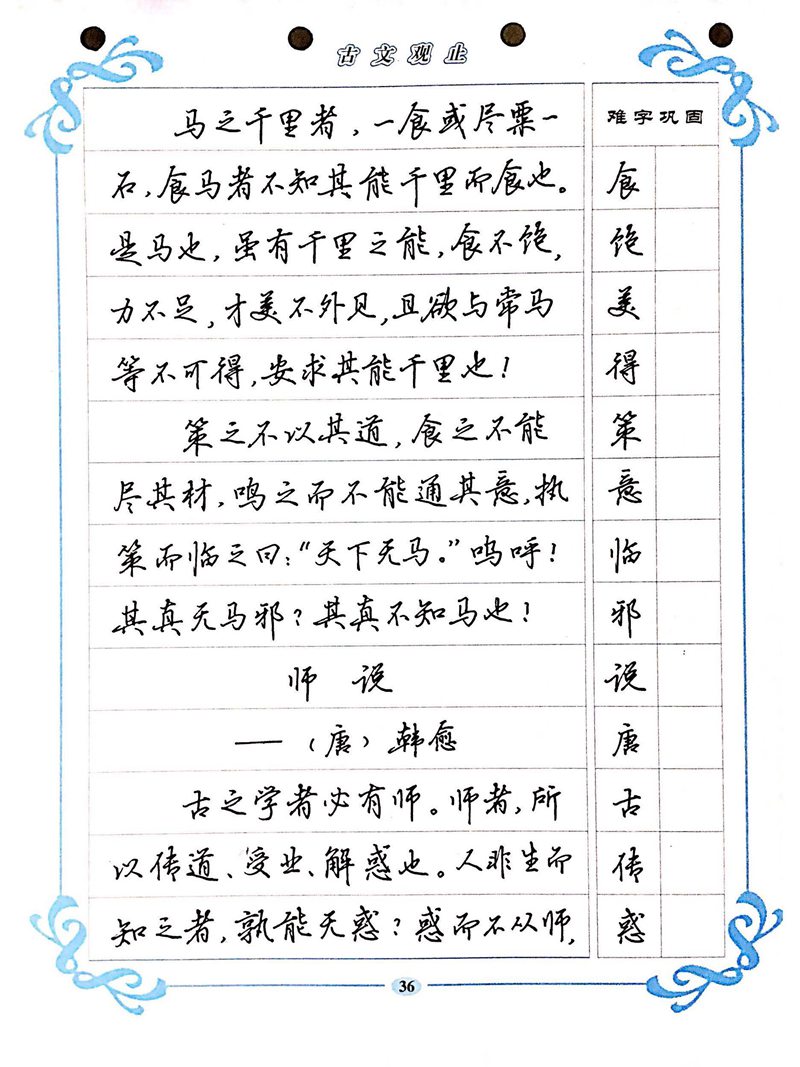 古文观止
马之千里者，一食或尽粟一
石，食马者不知其能千里而食也。
是马也，虽有千里之能，食不饱，
力不足，才美不外见，且欲与常马
等不可得，安求其能千里也！
策之不以其道，食之不能
尽其材，鸣之而不能通其意，执
策而临之曰：“天下无马。”呜呼！
其真无马邪？其真不知马也！
师 说
——（唐）韩愈
古之学者必有师。师者，所
以传道、受业、解惑也。人非生而
知之者，孰能无惑？惑而不从师，
难字巩固
食
饱
美
得
策
意
临
邪
说
唐
古
传
惑
36